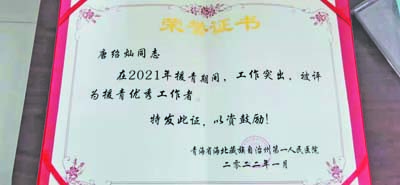 荣誉证书
唐绍灿同志
在2021年援青期间，工作突出，被评
为援青优秀工作者。
特发此证，以资鼓励！
青海省海北藏族自治州第一人民医院
二〇二二年一月